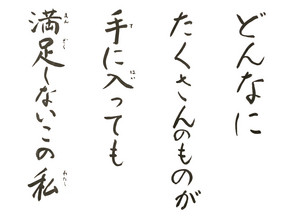 どんなに
たくさんのものが
手に入っても
満足しないこの私